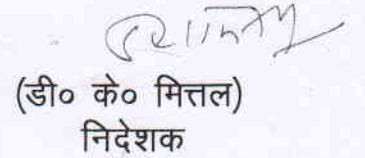 (डी० के० मित्तल)
निदेशक